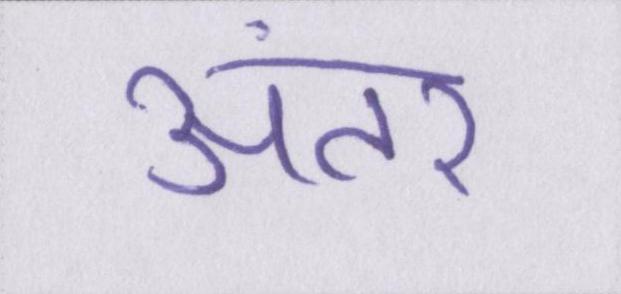 अंतर